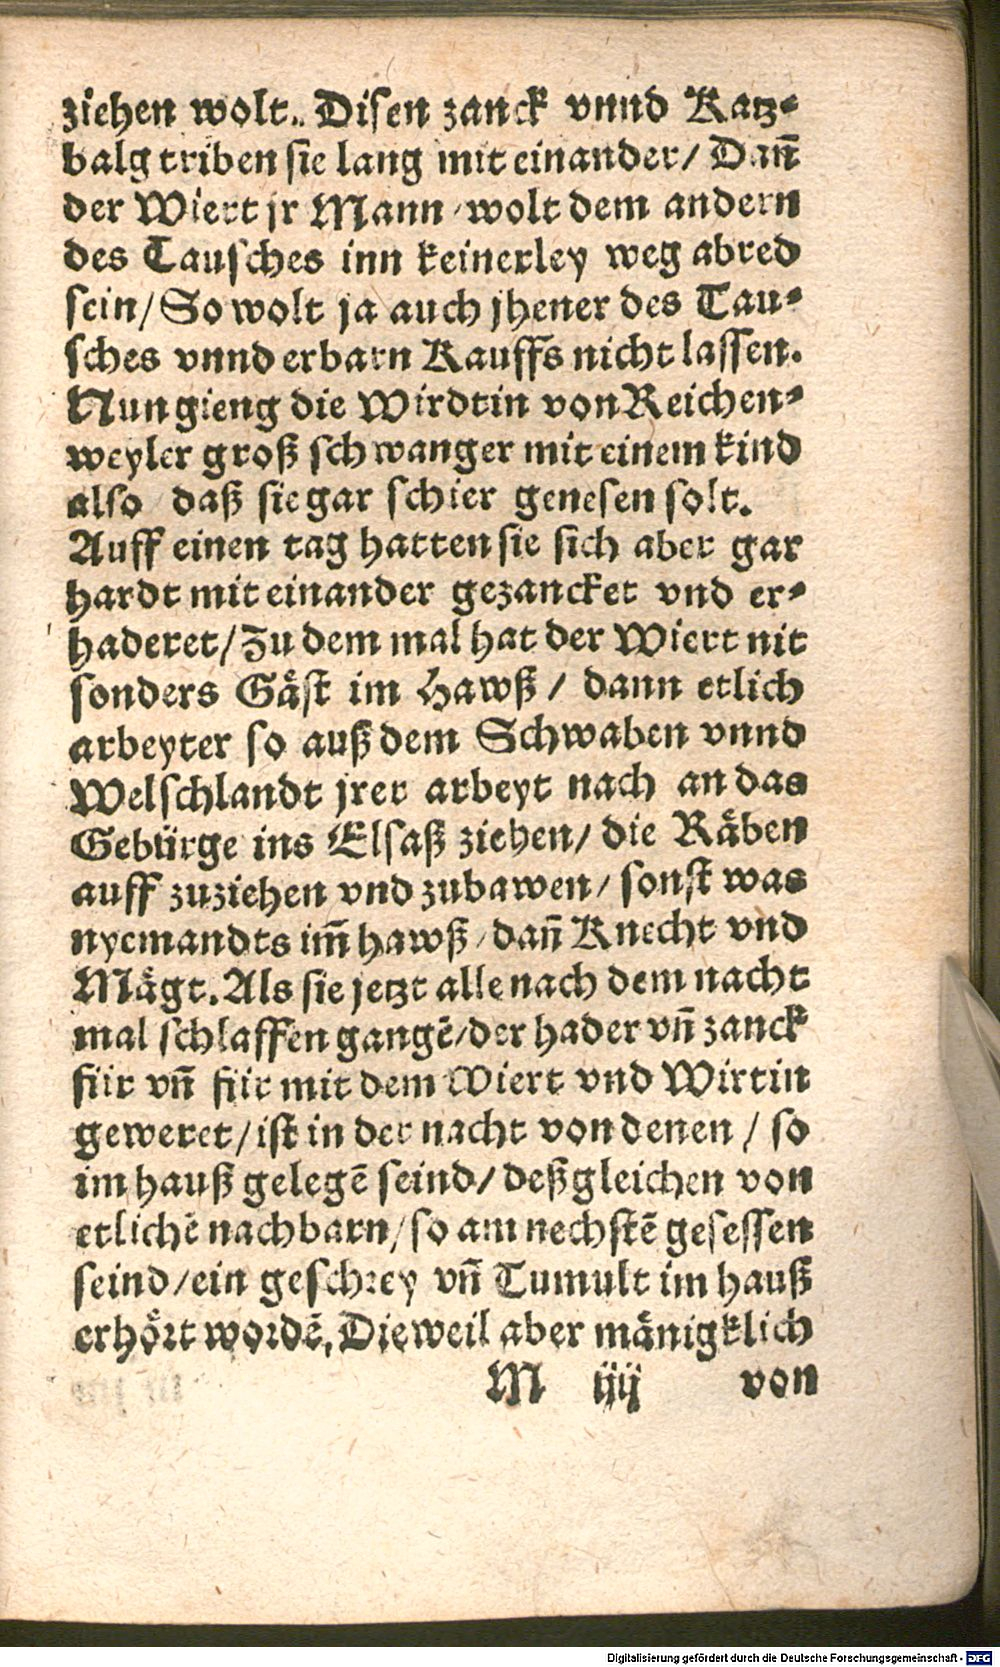 ziehen wolt. Disen zanck vnnd Katz-
balg triben sie lang mit einander/ Dañ
der Wiert jr Mann wolt dem andern
des Tausches inn keinerley weg abred
sein/ So wolt ja auch jhener des Tau-
sches vnnd erbarn Kauffs nicht lassen.
Nun gieng die Wirdtin von Reichen-
weyler groß schwanger mit einem kind
also daß sie gar schier genesen solt.
Auff einen tag hatten sie sich aber gar
hardt mit einander gezancket vnd er-
haderet/ Zu dem mal hat der Wiert nit
sonders Gäst im Hawß/ dann etlich
arbeyter so auß dem Schwaben vnnd
Welschlandt jrer arbeyt nach an das
Gebürge ins Elsaß ziehen/ die Räben
auff zuziehen vnd zubawen/ sonst was
nyemandts im̃ hawß/ dañ Knecht vnd
Mägt. Als sie jetzt alle nach dem nacht
mal schlaffen gangẽ/ der hader vñ zanck
für vñ für mit dem Wiert vnd Wirtin
geweret/ ist in der nacht von denen/ so
im hauß gelegẽ seind/ deßgleichen von
etlichẽ nachbarn/ so am nechstẽ gesessen
seind/ ein geschrey vñ Tumult im hauß
erhört wordẽ. Dieweil aber mänigklich
M iiij von
Digitalisierung gefördert durch die Deutsche Forschungsgemeinschaft - DFG